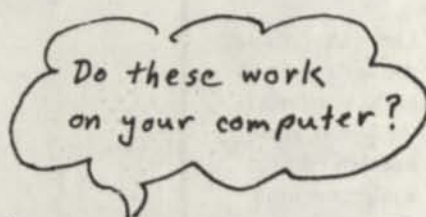 Do these work
on your computer?